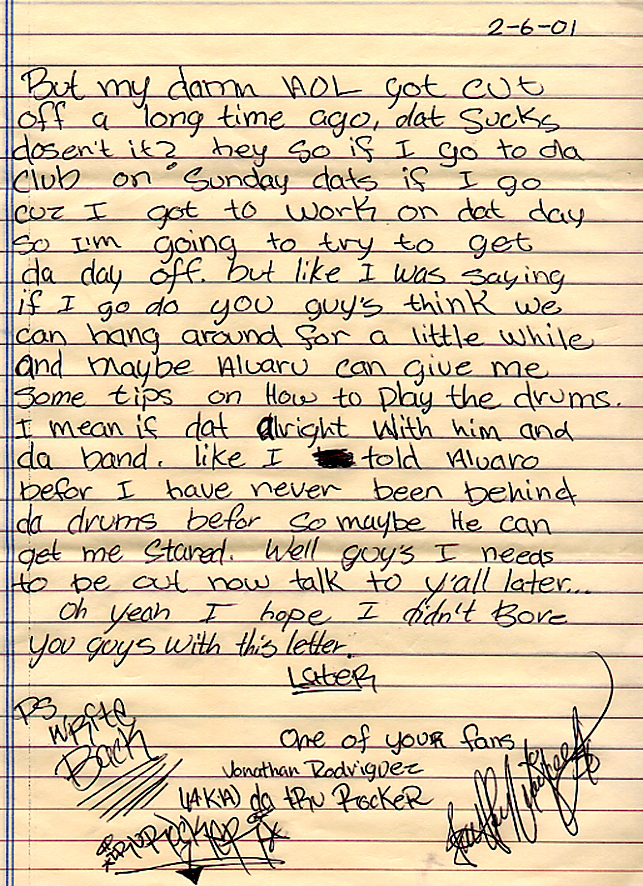 2-6-01
But my damn AOL got cut
off a long time ago, dat sucks
dosen't it? hey so if I go to da
club on Sunday dats if I go
cuz I got to work on dat day
so I'm going to try to get
da day off. but like I was saying
if I go do you guy's think we
can hang around for a little while
and maybe Alvaro can give me
some tips on How to play the drums.
I mean if dat alright with him and
da band. like I told Alvaro
befor I have never been behind
da drums befor so maybe He can
get me stared. Well guy's I needs
to be out now talk to y'all later...
Oh yeah I hope I didn't Bore
you guys with this letter.
Later
PS
Write
Back
One of your fans
Jonathan Rodriguez
(AKA) da tru Rocker